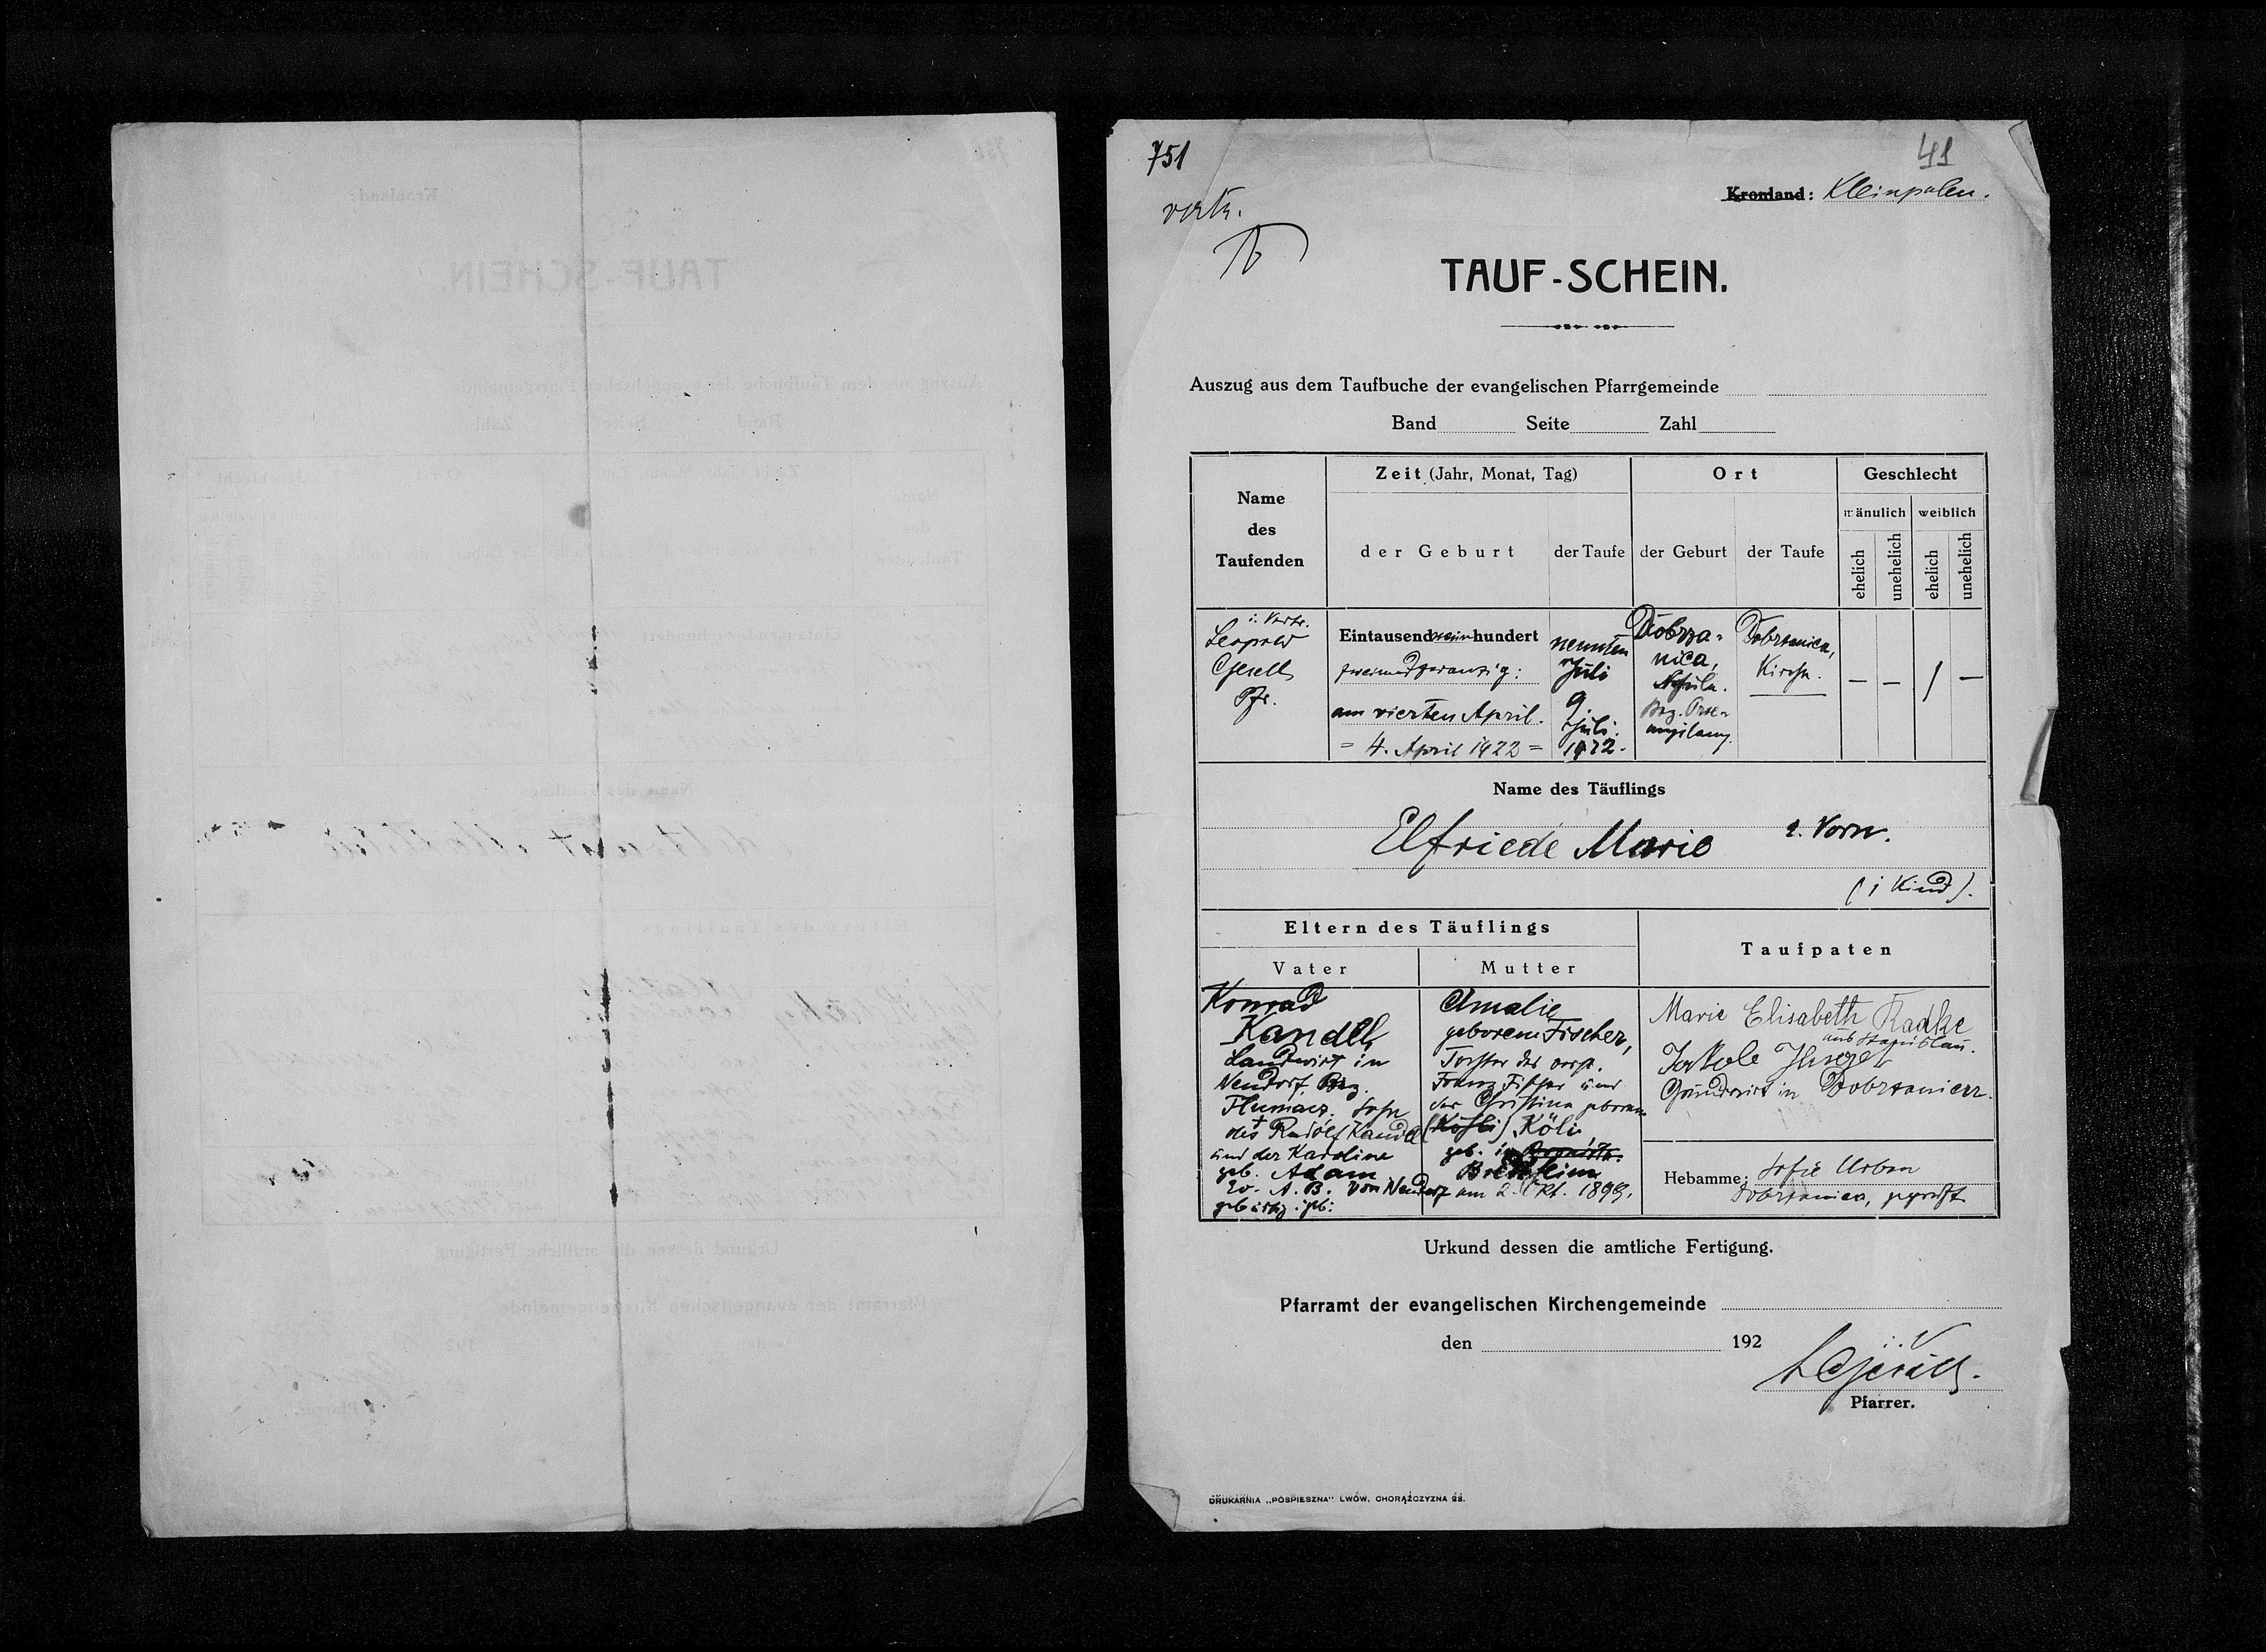 751
41
vertr.
Kronland: Kleinpolen.
TAUF-SCHEIN.
Auszug aus dem Taufbuche der evangelischen Pfarrgemeinde
Band Seite Zahl
Name des Taufenden
Zeit (Jahr, Monat, Tag)
Ort
Geschlecht
männlich weiblich
der Geburt der Taufe der Geburt der Taufe
ehelich unehelich ehelich unehelich
i. Vertr.
Leopold
Gesell
Pfr.
Eintausend neun hundert
zweiundzwanzig:
am vierten April.
= 4. April 1922 =
neunten
Juli
9.
Juli.
1922.
Dobrza-
nica,
Schule.
Bez. Prze-
myslany.
Dobrzanica,
Kirche.
— — / —
Name des Täuflings
Elfriede Marie 2. Vorn.
(1 Kind).
Eltern des Täuflings
Taufpaten
Vater Mutter
Konrad
Kandel,
Landwirt in
Neudorf, Bez.
Tlumacz. Sohn
des † Rudolf Kandel
und der Karoline
geb. Adam
Ev. A. B. von Neudorf
gebürtig. geb:
Amalie
geborene Fischer,
Tochter des verst.
Franz Fischer und
der Christina geborene
(Kohli) Köli
geb. in
am 2. Okt. 1899.
Marie Elisabeth Radke
aus Stanislau.
Jakob
Grundwirt in Dobrzanica.
Hebamme: Sofie Urban
Dobrzanica, geprüft
Urkund dessen die amtliche Fertigung.
Pfarramt der evangelischen Kirchengemeinde
den 192
Pfarrer.
DRUKARNIA „POSPIESZNA" LWÓW, CHORĄŻCZYZNA 28.